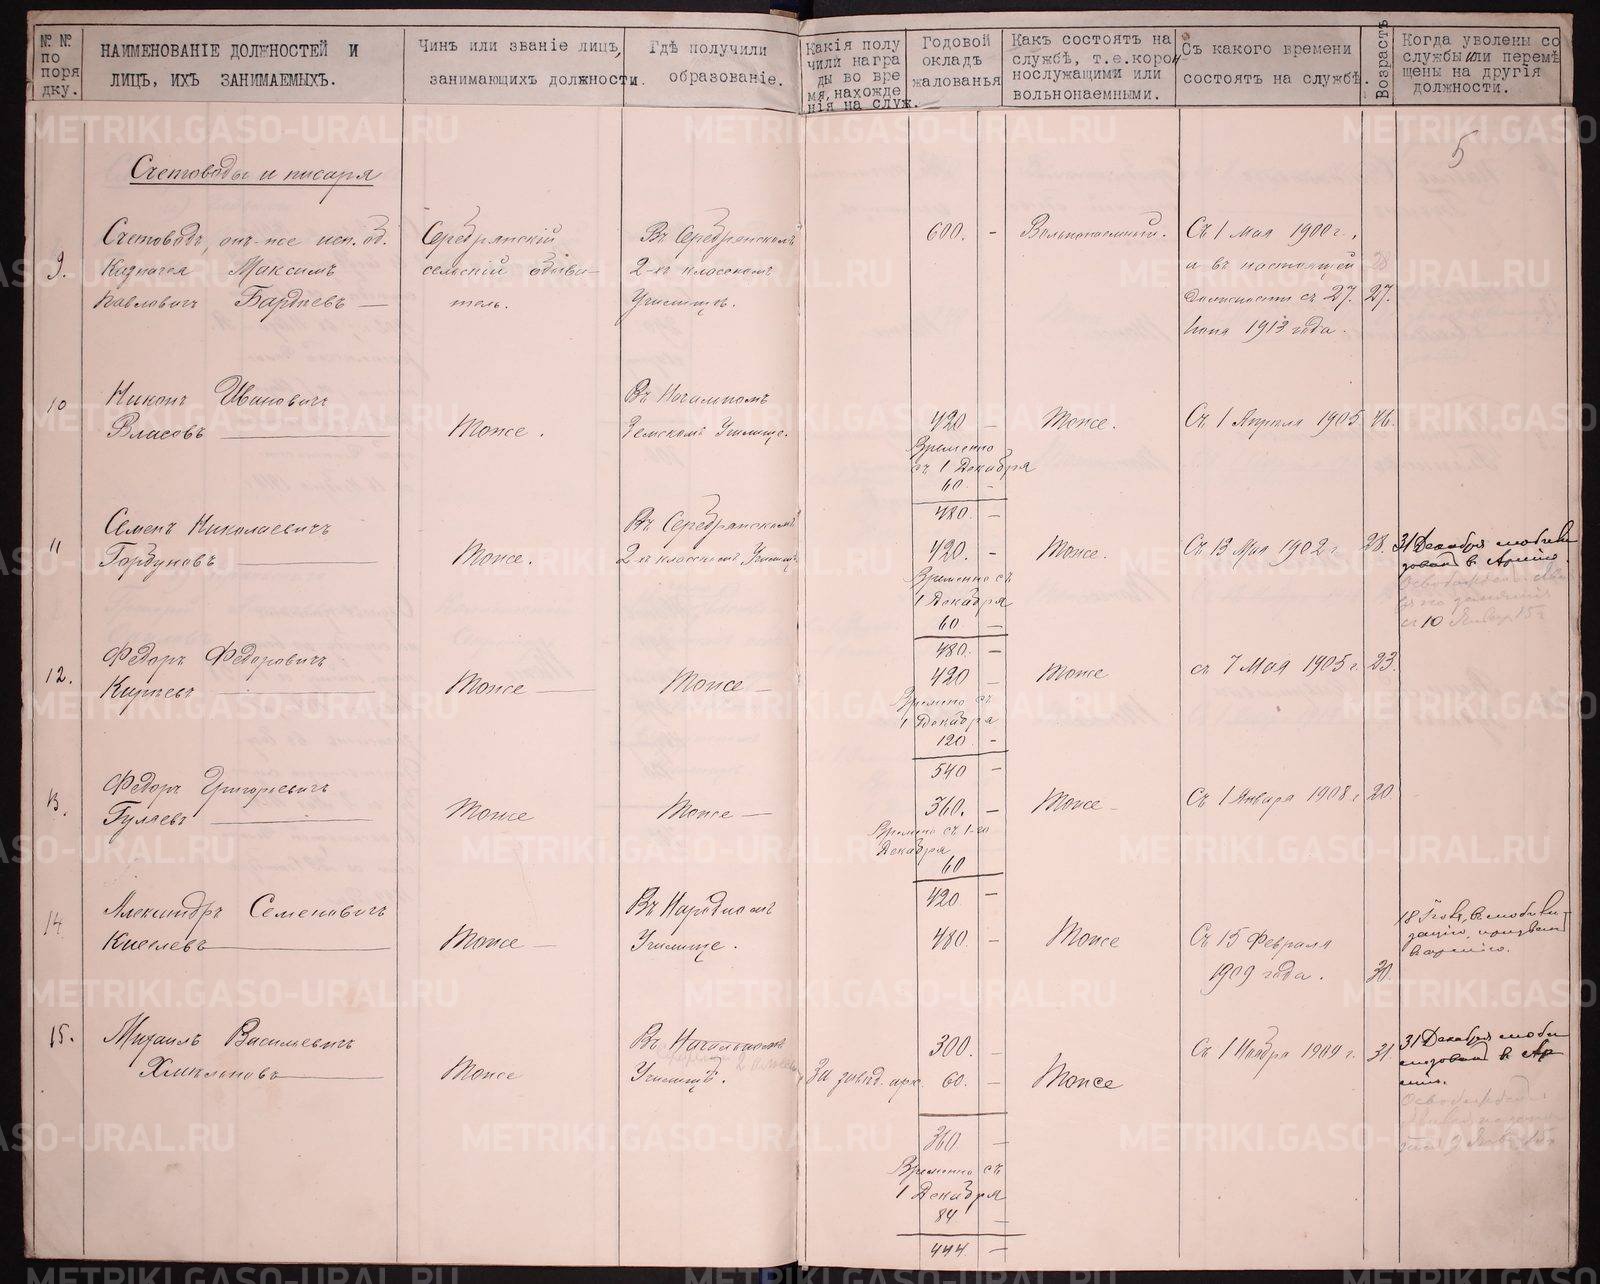 № №
по
поря
дку.
НАИМЕНОВАНІЕ ДОЛЖНОСТЕЙ И
ЛИЦЪ, ИХЪ ЗАНИМАЕМЫХЪ.
Чинъ или званіе лицъ,
занимающихъ должности.
Гдѣ получили
образованіе.
Какія полу
чили награ
ды во вре
мя, нахожде
нія на служ.
Годовой
окладъ
жалованья
Какъ состоятъ на
службѣ, т.е. корон
нослужащими или
вольнонаемными.
Съ какого времени
состоятъ на службѣ.
Возрастъ
Когда уволены со
службы или перемѣ
щены на другія
должности.
5
Счетоводы и писаря
9.
Счетоводъ, онъ-же исп. об.
Казначея Максимъ
Павловичъ
Серебрянскій
сельскій обыва-
тель.
Въ Серебрянскомъ
2-хъ классномъ
Училищѣ.
600. -
Вольнонаемный.
Съ 1 мая 1900 г.,
и въ настоящей
должности съ 27.
Іюня 1913 года.
27.
10
Никонъ Ивановичъ
Власовъ
Тоже.
Въ Начальномъ
Земскомъ Училище.
420 -
Временно
съ 1 Декабря
60. -
480. -
Тоже.
Съ 1 Апреля 1905
46.
11
Семенъ Николаевичъ
Горбуновъ
Тоже.
Въ Серебрянскомъ
2-хъ классномъ Училищѣ
420. -
Временно съ
1 Декабря
60 -
480. -
Тоже.
Съ 13 Мая 1902 г
28.
31 Декабря мобили
зованъ в Армію.
10
12.
Федоръ Федоровичъ
Киряевъ
Тоже
Тоже
420 -
Времено съ
1 Декабря
120 -
540 -
Тоже
съ 7 Мая 1905 г.
23.
13.
Федоръ Григорьевичъ
Гуляевъ
Тоже
Тоже
360. -
Времено съ 1-го
Декабря
60
420 -
Тоже
Съ 1 Января 1908 г
20
14
Александръ Семеновичъ
Киселевъ
Тоже
Въ Народномъ
Училище.
480. -
Тоже
Съ 15 Февраля
1909 года.
30.
18
15.
Михаилъ Васильевичъ
Хмѣльновъ
Тоже
Въ Начальномъ
Училищѣ.
За завѣд. арх.
300. -
60. -
360. -
Временно съ
1 Декабря
84 -
444 -
Тоже
Съ 1 Ноября 1909 г.
31.
31 Декабря моби
лизованъ в Ар
мію.
METRIKI.GASO-URAL.RU